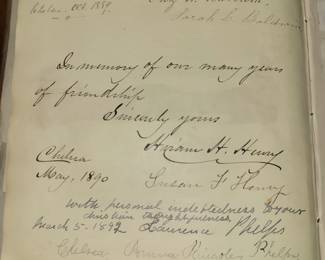 Chelsea Oct. 1889.
Sarah E. Baldwin
In memory of our many years
of friendship
Sincerely yours
Hiram H. Henry
Chelsea
May, 1890
Susan F Henry
With personal indebtedness to your
christian
March 5. 1892 Lawrence Phelps
Chelsea Phelps